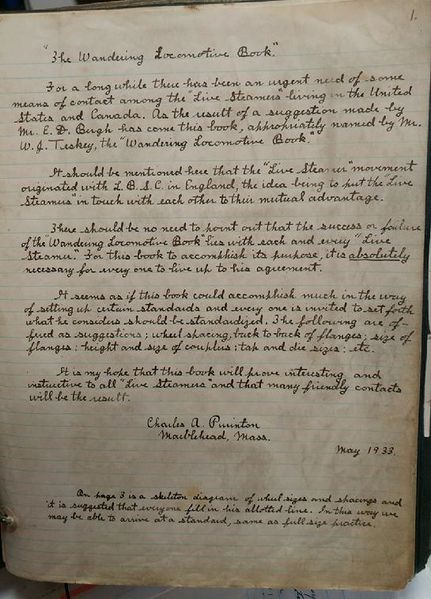 1.
"The Wandering Locomotive Book".
For a long while there has been an urgent need of some
means of contact among the "Live Steamers" living in the United
States and Canada. As the result of a suggestion made by
Mr. E. D. Bugh has come this book, appropriately named by Mr.
W. J. Teskey, the "Wandering Locomotive Book".
It should be mentioned here that the "Live Steamer" movement
originated with L.B.S.C. in England, the idea being to put the "Live
Steamers" in touch with each other to their mutual advantage.
There should be no need to point out that the success or failure
of the "Wandering Locomotive Book" lies with each and every "Live
Steamer." For this book to accomplish its purpose, it is absolutely
necessary for every one to live up to his agreement.
It seems as if this book could accomplish much in the way
of setting up certain standards and every one is invited to set forth
what he considers should be standardized. The following are of-
fered as suggestions; wheel spacing, back to back of flanges; size of
flanges; height and size of couplers; tap and die sizes; etc.
It is my hope that this book will prove interesting and
instructive to all "Live Steamers" and that many friendly contacts
will be the result.
Charles A. Purinton
Marblehead, Mass.
May 1933.
On page 3 is a skeleton diagram of wheel sizes and spacings and
it is suggested that everyone fill in his allotted line. In this way we
may be able to arrive at a standard, same as full size practice.